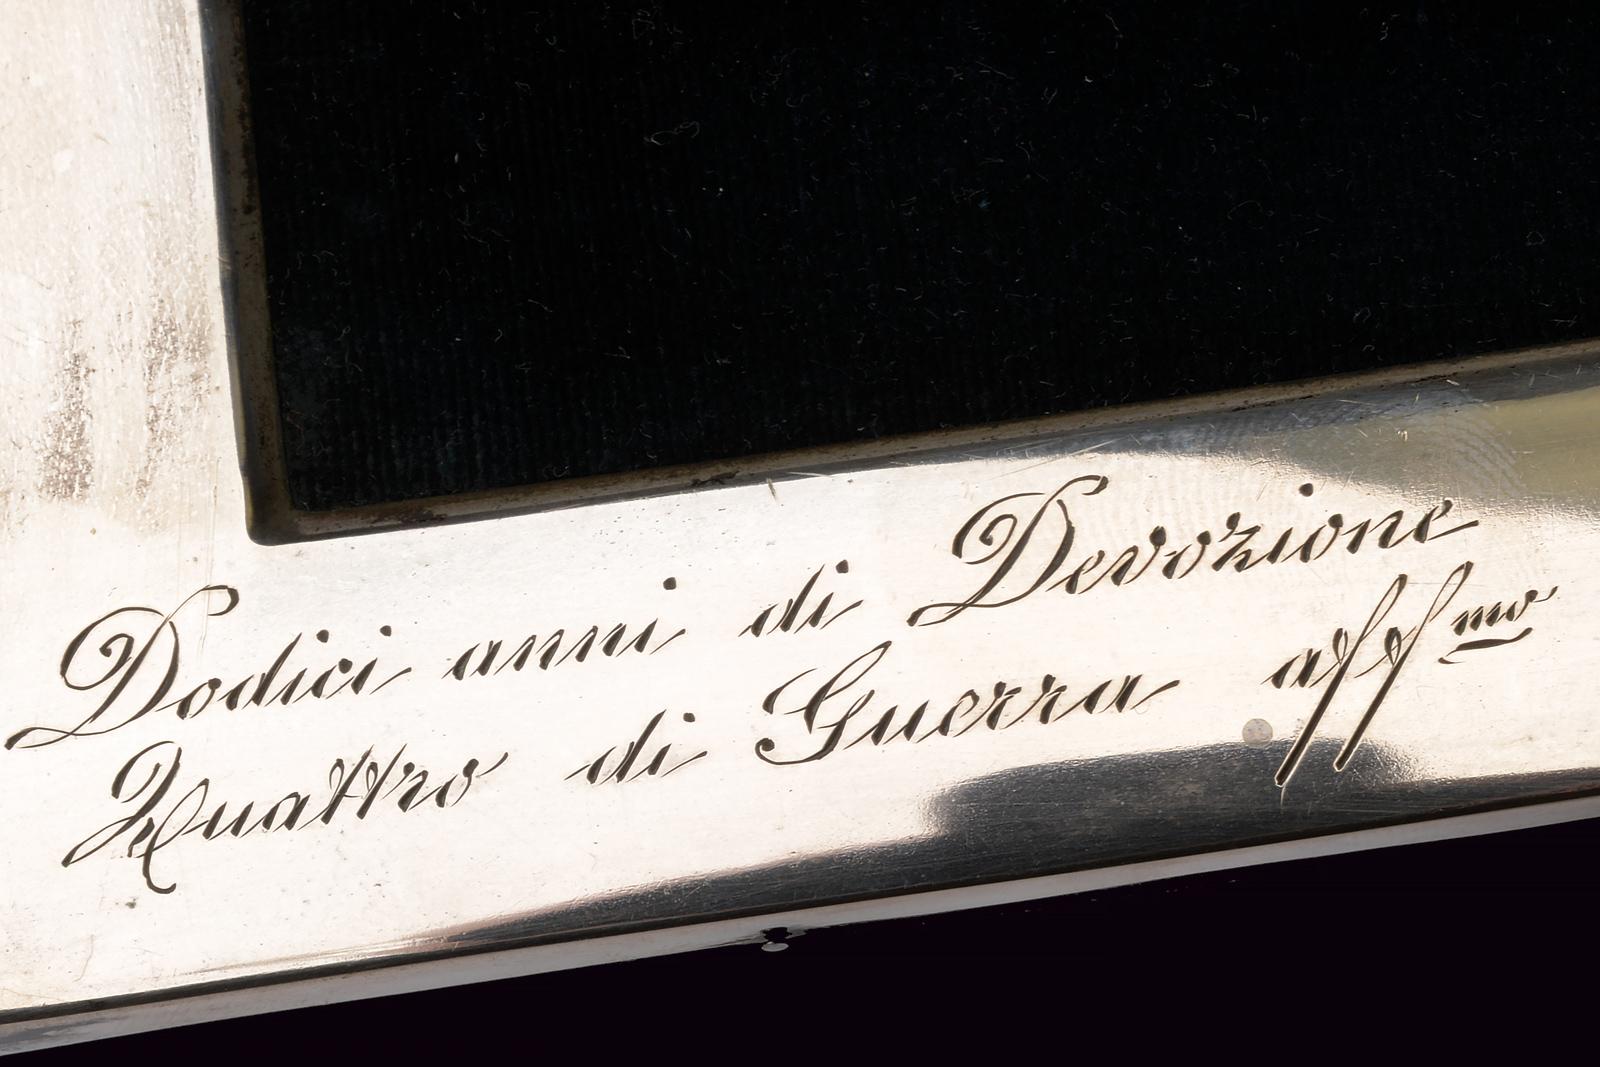 Dodici anni di Devozione
Quattro di Guerra aff.mo